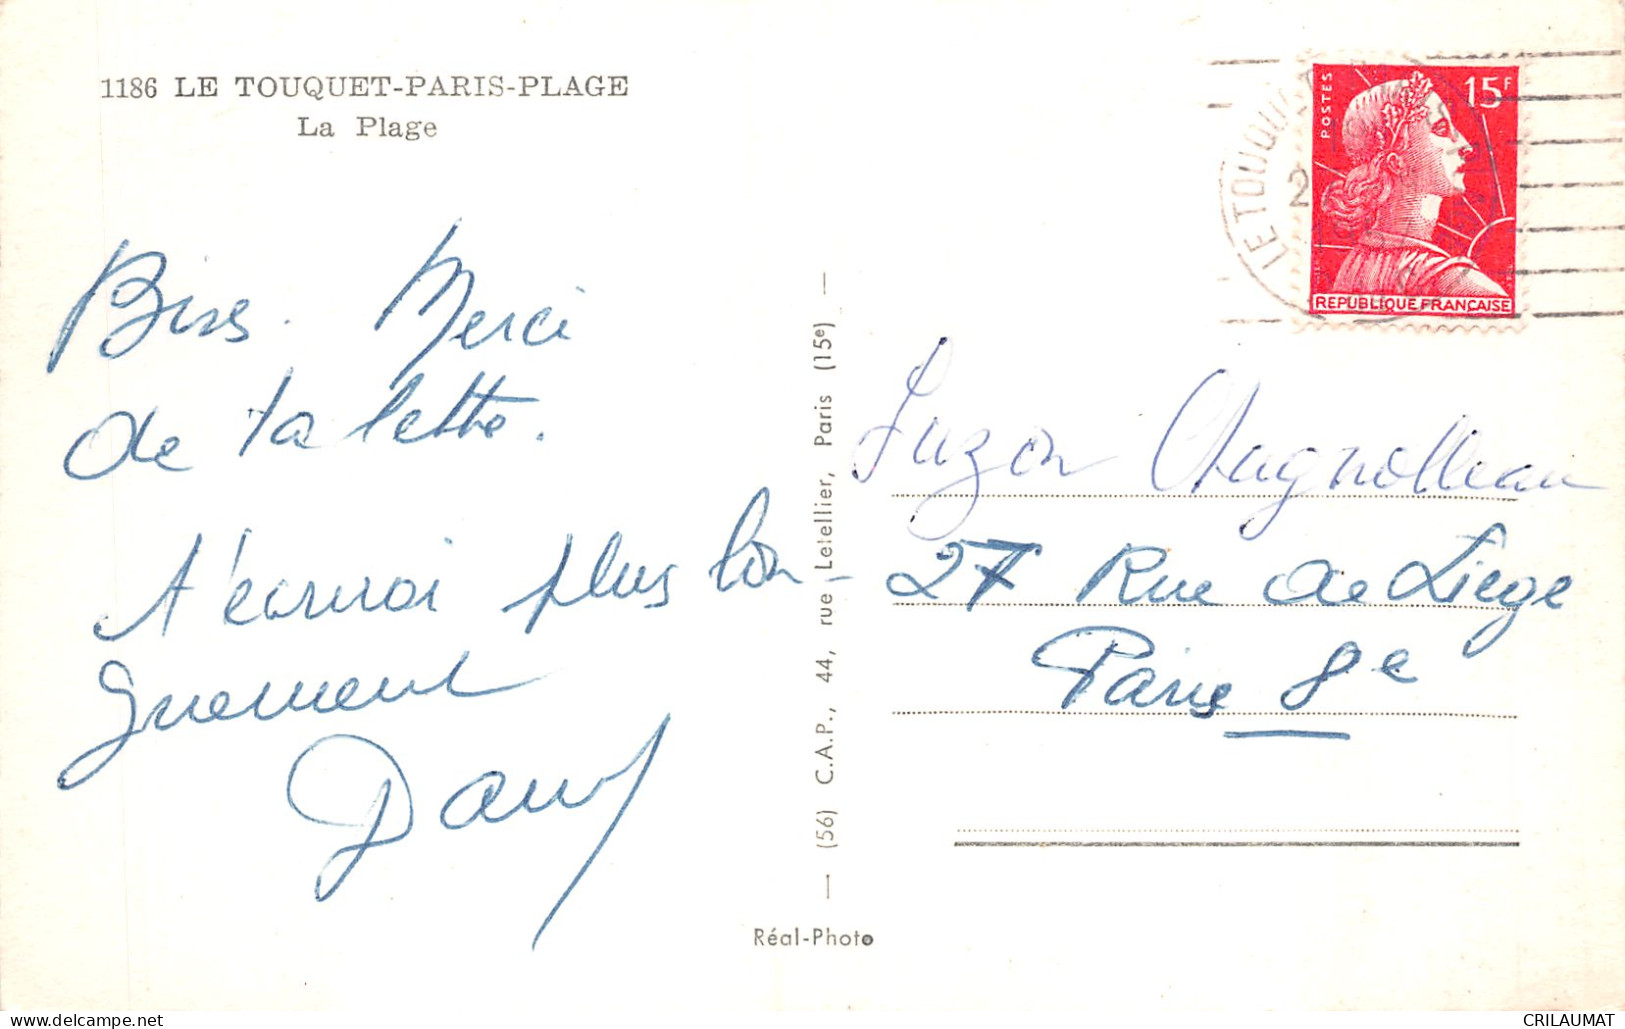 1186 LE TOUQUET-PARIS-PLAGE
La Plage
Bises. Merci
de ta lettre.
T'écrirai plus lon-
guement
Dany
— (56) C.A.P., 44, rue Letellier, Paris (15e) —
Réal-Photo
LE TOUQUET
2
POSTES
15F
REPUBLIQUE FRANÇAISE
Suzon Chagnolleau
27 Rue de Liège
Paris 8e
CRILAUMAT